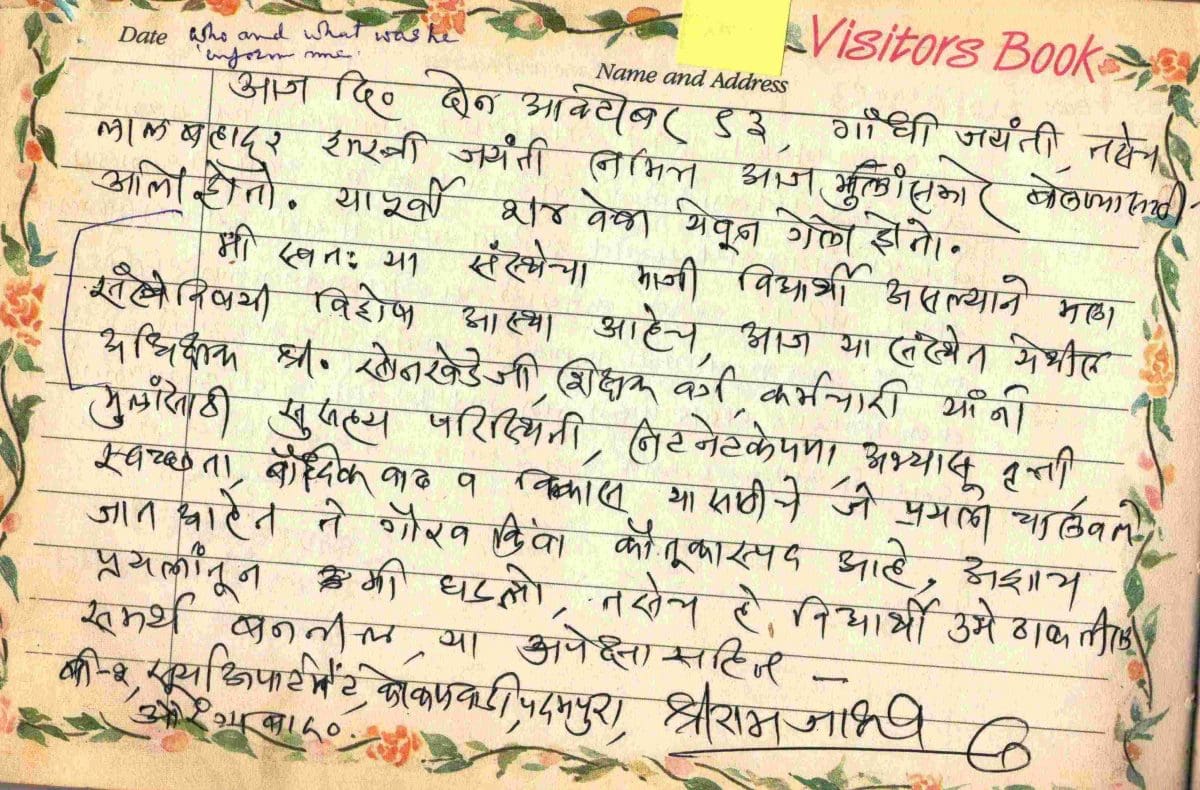 Visitors Book
Date who and what was he
inform me.
Name and Address
आज दि० दोन आक्टोबर ९३, गाँधी जयंती, तसेच
लालबहादुर शास्त्री जयंती निमित्त आज मुलांसमोर बोलण्यासाठी
आलो होतो. यापूर्वी वेळा येवून गेलो होतो.
मी स्वतः या संस्थेचा माजी विद्यार्थी असल्याने मला
संस्थेविषयी विशेष आस्था आहेच, आज या संस्थेत येथील
अधिक्षक श्री. सोनखेडेजी, शिक्षक वर्ग, कर्मचारी यांनी
मुलांसाठी सुसह्य परिस्थिती, निटनेटकेपणा, अभ्यासू वृत्ती,
स्वच्छता, बौध्दिक वाढ व विकास या साठीचे जे प्रयत्न चालविले
जात आहेत ते गौरव किंवा कौतूकास्पद आहे. अशाच
प्रयत्नांतून मी घडलो, तसेच हे विद्यार्थी उभे ठाकतील
समर्थ बनतील या अपेक्षेसहित –
बी-२, सूर्या अपार्टमेंट, कोकणवाडी, पदमपुरा, श्रीराम जाधव
औरंगाबाद.